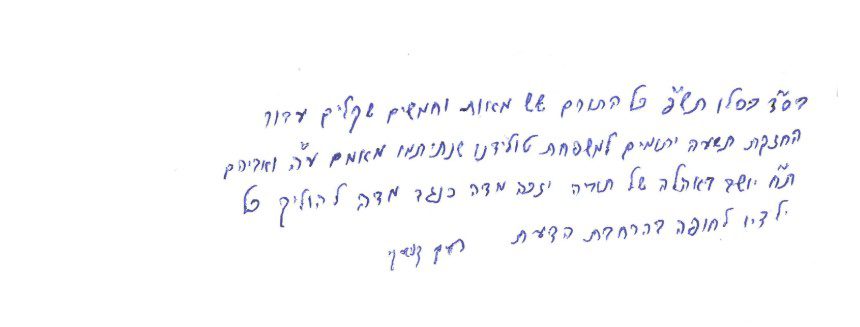 בס"ד כסלו תש"פ כל התורם שש מאות וחמשים שקלים עבור
החזקת תשעה יתומים למשפחת טולידנו שנתיתמו מאמם ע"ה ואביהם
ת"ח יושב באהלה של תורה יזכה מדה כנגד מדה להוליך כל
ילדיו לחופה בהרחבת הדעת